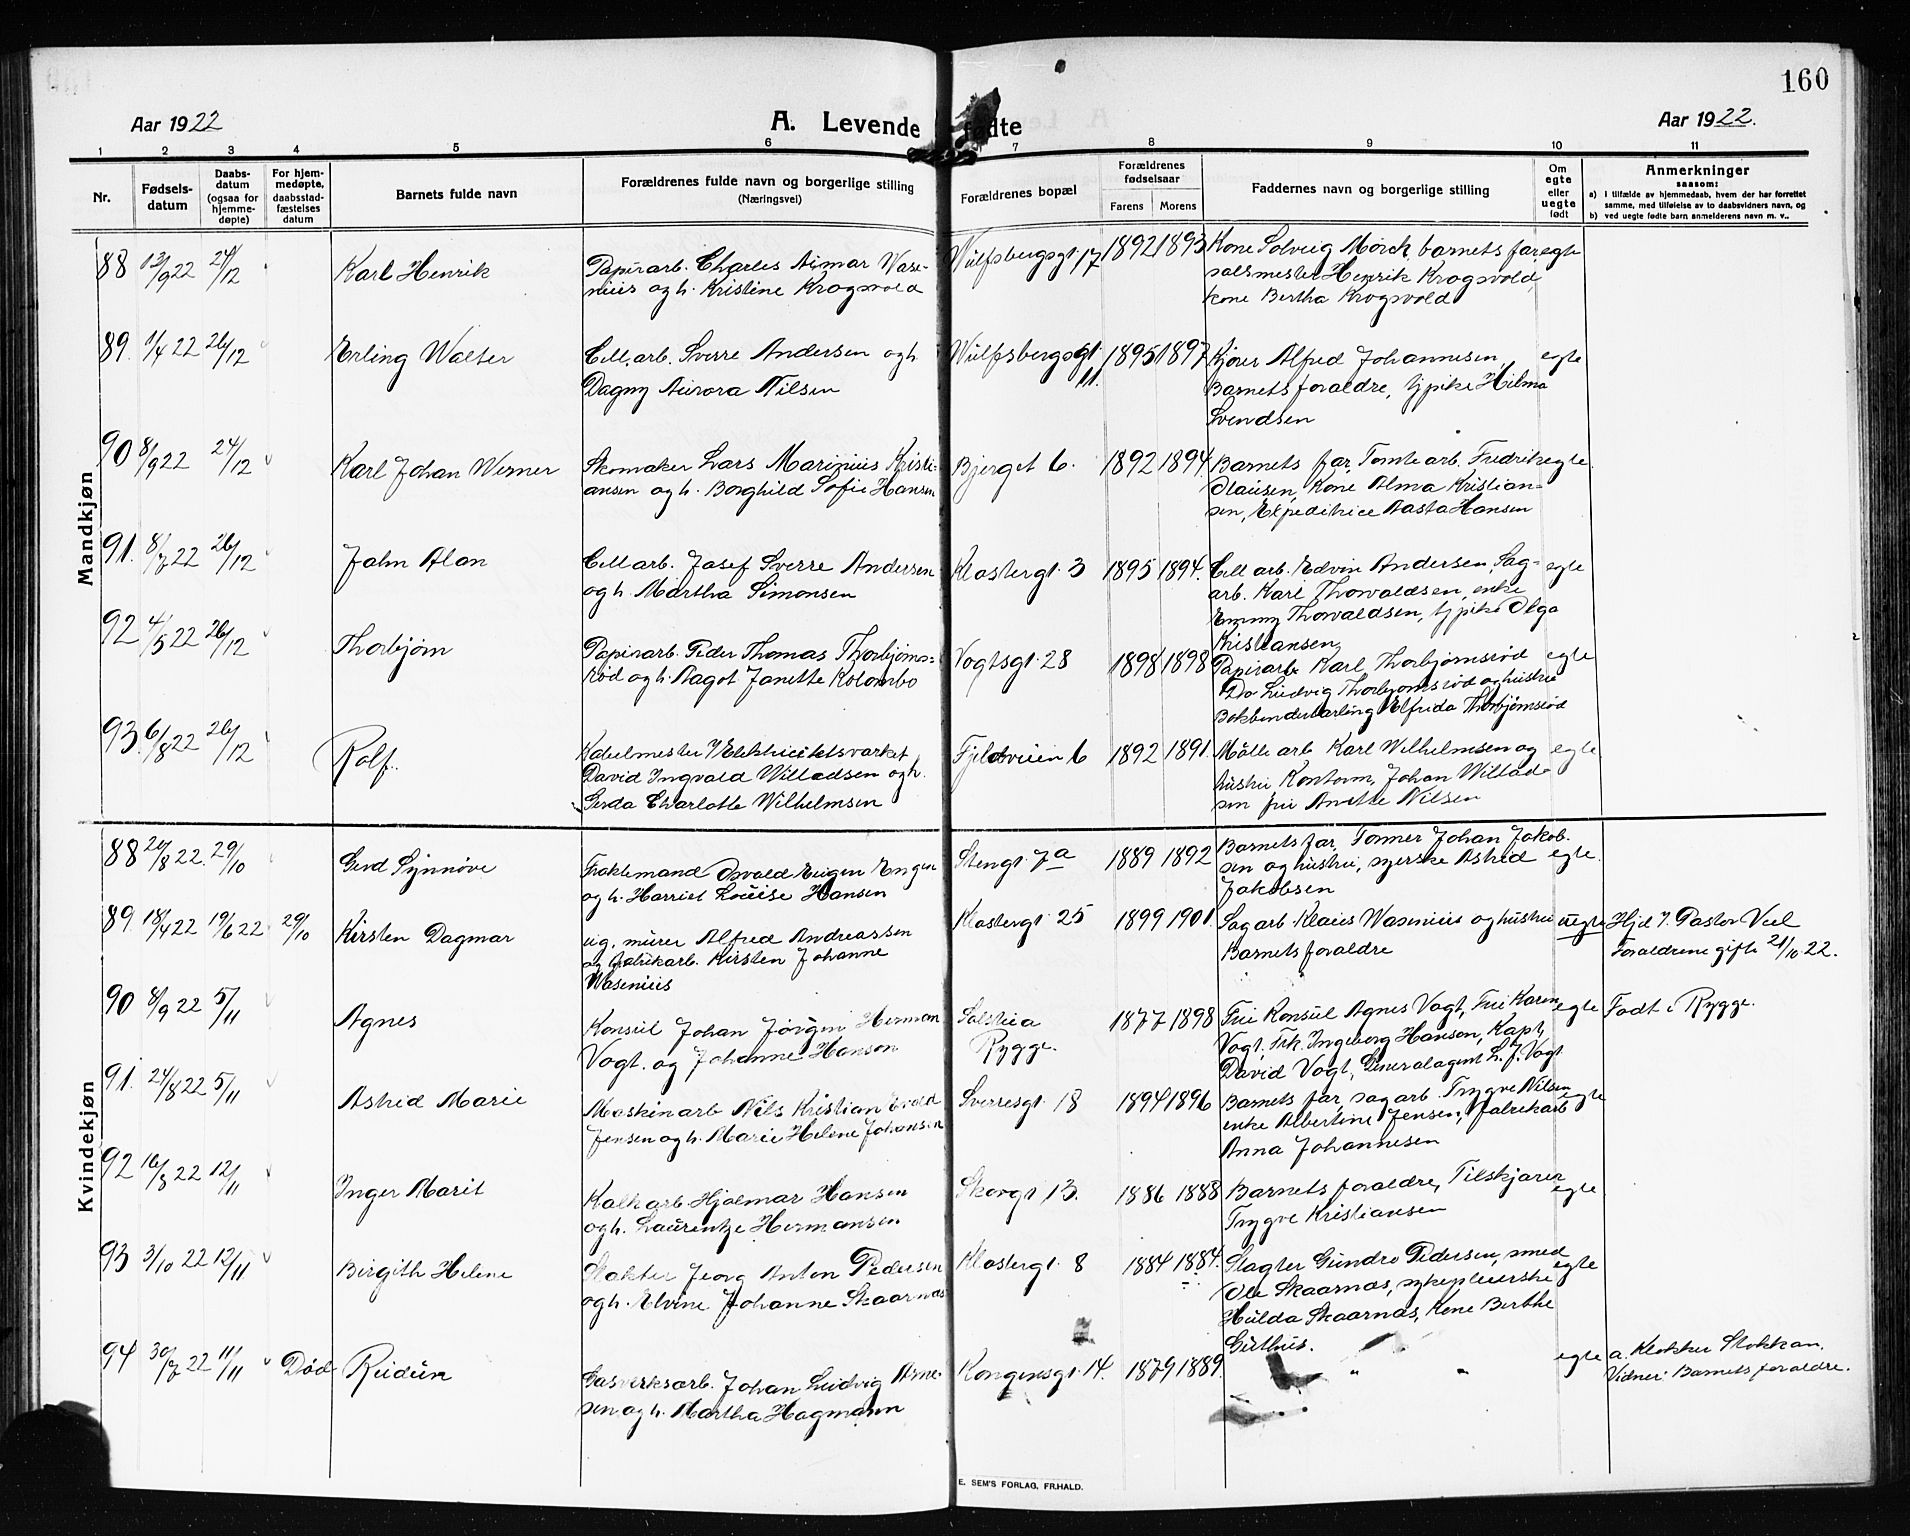 160
Aar 1922
A. Levende fødte
Aar 1922.
1 2 3 4 5 6 7 8 9 10 11
Nr.
Fødsels-
datum
Daabs-
datum
(ogsaa for
hjemme-
døpte)
For hjem-
medøpte,
daabsstad-
fæstelses
datum
Barnets fulde navn
Forældrenes fulde navn og borgerlige stilling
(Næringsvei)
Forældrenes bopæl
Forældrenes
fødselsaar
Farens Morens
Faddernes navn og borgerlige stilling
Om
egte
eller
uegte
født
Anmerkninger
saasom:
a) i tilfælde av hjemmedaab, hvem der har forrettet
samme, med tilføielse av to daabsvidners navn, og
b) ved uegte fødte barn anmelderens navn m. v..
Mandkjøn
88 13/9 22 24/12 Karl Henrik
Papirarb. Charles Aimar Wase-
nius og h. Kristine Krogsvold
Wulfsbergsgt 17 1892 1893
Kone Solveig Mörck, barnets far egte
salsmester Henrik Krogsvold,
kone Bertha Krogsvold
89. 1/4 22 26/12 Erling Walter
Cell. arb. Sverre Andersen og h
Dagny Aurora Nilsen
Wulfsbergsgt 11. 1895 1897
Kjører Alfred Johannesen, egte
Barnets foraldre, tjpike Hilma
Svendsen
90 8/9 22 24/12 Karl Johan Werner
Skomaker Lars Marinius Kristi-
ansen og h. Borghild Sofie Hansen
Bjerget 6. 1892 1894
Barnets far, Tomtearb. Fredrik egte
Olausen, Kone Alma Kristian-
sen, Expeditrice Aasta Hansen
91. 8/7 22 26/12 John Alan
Cellarb. Josef Sverre Andersen
og h. Martha Simonsen
Klostergt. 3 1895 1894.
Cellarb. Edvin Andersen, Sag- egte
arb. Karl Thorvaldsen, enke
Emmy Thorvaldsen, tjpike Olga
Kristiansen,
92 4/5 22 26/12 Thorbjørn
Papirarb. Peder Thomas Thorbjørns-
rød og h. Aagot Janette Kolombo
Vogtsgt. 28 1898 1898
Papirarb Karl Thorbjørnsrød egte
Do Ludvig Thorbjørnsrød og hustru
Bokbinderlærling Elfrida Thorbjørnsrød
93 6/8 22 26/12 Rolf.
Kabelmester v/ Elektricitetsvarket
David Ingvald Willadsen og h.
Gerda Charlotte Wilhelmsen
Fjeldveien 6 1892 1891.
Mölle arb Karl Wilhelmsen og egte
hustru Kontorm, Johan Willad-
sen fru Anette Nilsen
Kvindekjøn
88 20/8 22. 29/10 Gerd Synnøve
Fraktemand Osvald Eugen Engen
og h. Harriet Louise Hansen
Stengt. 7a 1889 1892
Barnets far, Tömmer Johan Jakob-
sen og hustru, syerske Astrid egte.
Jakobsen
89. 18/4 22 19/6 22 29/10 Kirsten Dagmar
ug. murer Alfred Andreassen
og fabrikarb. Kirsten Johanne
Wasenius
Klostergt 25 1899 1901.
Sagarb Klaus Wasenius og hustru uegte
Barnets foraldre
Hjd v. Pastor Veel
Foraldrene gifte 21/10 22.
90 8/9 22 5/11 Agnes
Konsul Johan Jörgen Herman
Vogt. og Johanne Hanson
Rygge. 1877 1898
Fru Konsul Agnes Vogt, Fru Karen egte
Vogt, Frk. Ingeborg Hansen, Kapt,
David Vogt, Generalagent L. J. Vogt
Født i Rygge.
91. 24/8 22 5/11 Astrid Marie
Maskinarb Nils Kristian
Jensen og h. Marie Helene Johansen
Sverresgt. 18 1894 1896
Barnets far, sagarb. Trygve Nilsen egte
enke Albertine Jensen, fabrikarb
Anna Johannesen
92 16/8 22 12/11 Inger Marit
Kalkarb Hjalmar Hansen
og h. Laurentze Hermansen
Skovgt 13. 1886 1888
Barnets foraldre, Tilskjærer egte
Trygve Kristiansen
93 3/10 22 12/11 Birgith Helene
Slakter Georg Anton Pedersen
og h. Elvine Johanne Skaarnæs
Klostergt. 8 1884 1884.
Slagter Gundro Pedersen, smed egte
Ole Skaarnæs, sykepleierske
Hulda Skaarnæs, Kone Berthe
Guthus.
94 30/7 22 11/11 Død Reidun
Gasverksarb. Johan Ludvig Arne-
sen og h. Martha Hagmann
Kongensgt. 14. 1879 1889. " " egte
a. Klokker Stokkan.
Vidner: Barnets foraldre.
E. SEM'S FORLAG, FR.HALD.